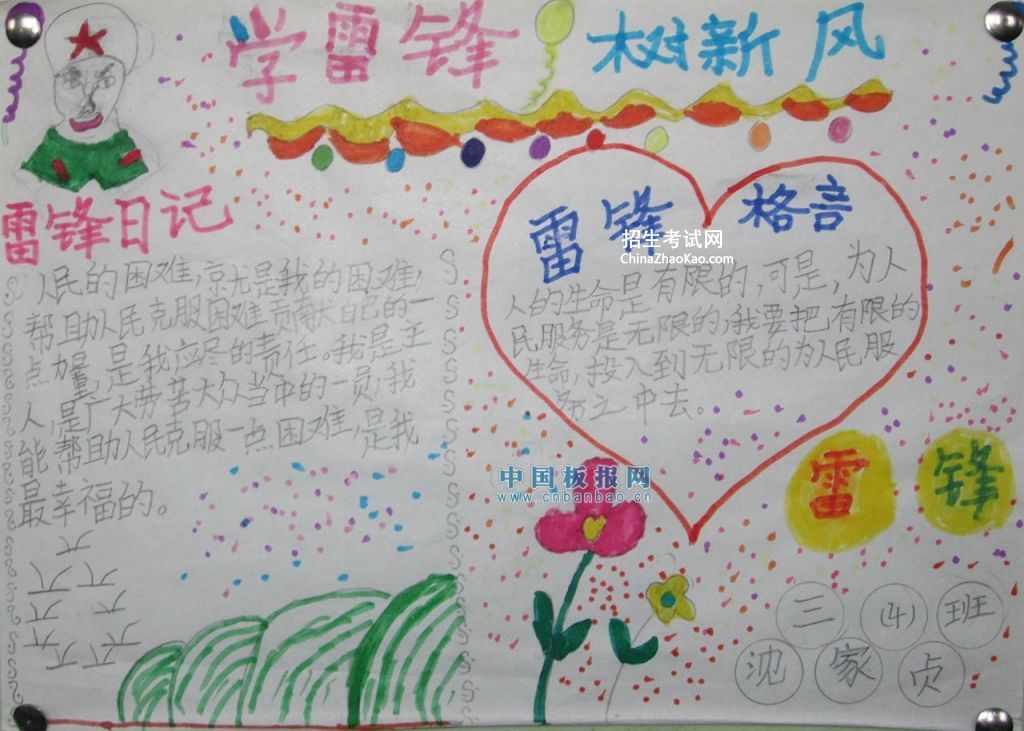 学雷锋 树新风
雷锋日记
人民的困难,就是我的困难,
帮助人民克服困难贡献自己的一
点力量,是我应尽的责任。我是主
人,是广大劳苦大众当中的一员,我
能帮助人民克服一点困难,是我
最幸福的。
雷锋 格言
招生考试网
ChinaZhaoKao.com
人的生命是有限的,可是,为人
民服务是无限的,我要把有限的
生命,投入到无限的为人民服
务之中去。
中国板报网
www.cnbanbao.cn
雷 锋
三 (4) 班
沈 家 贞